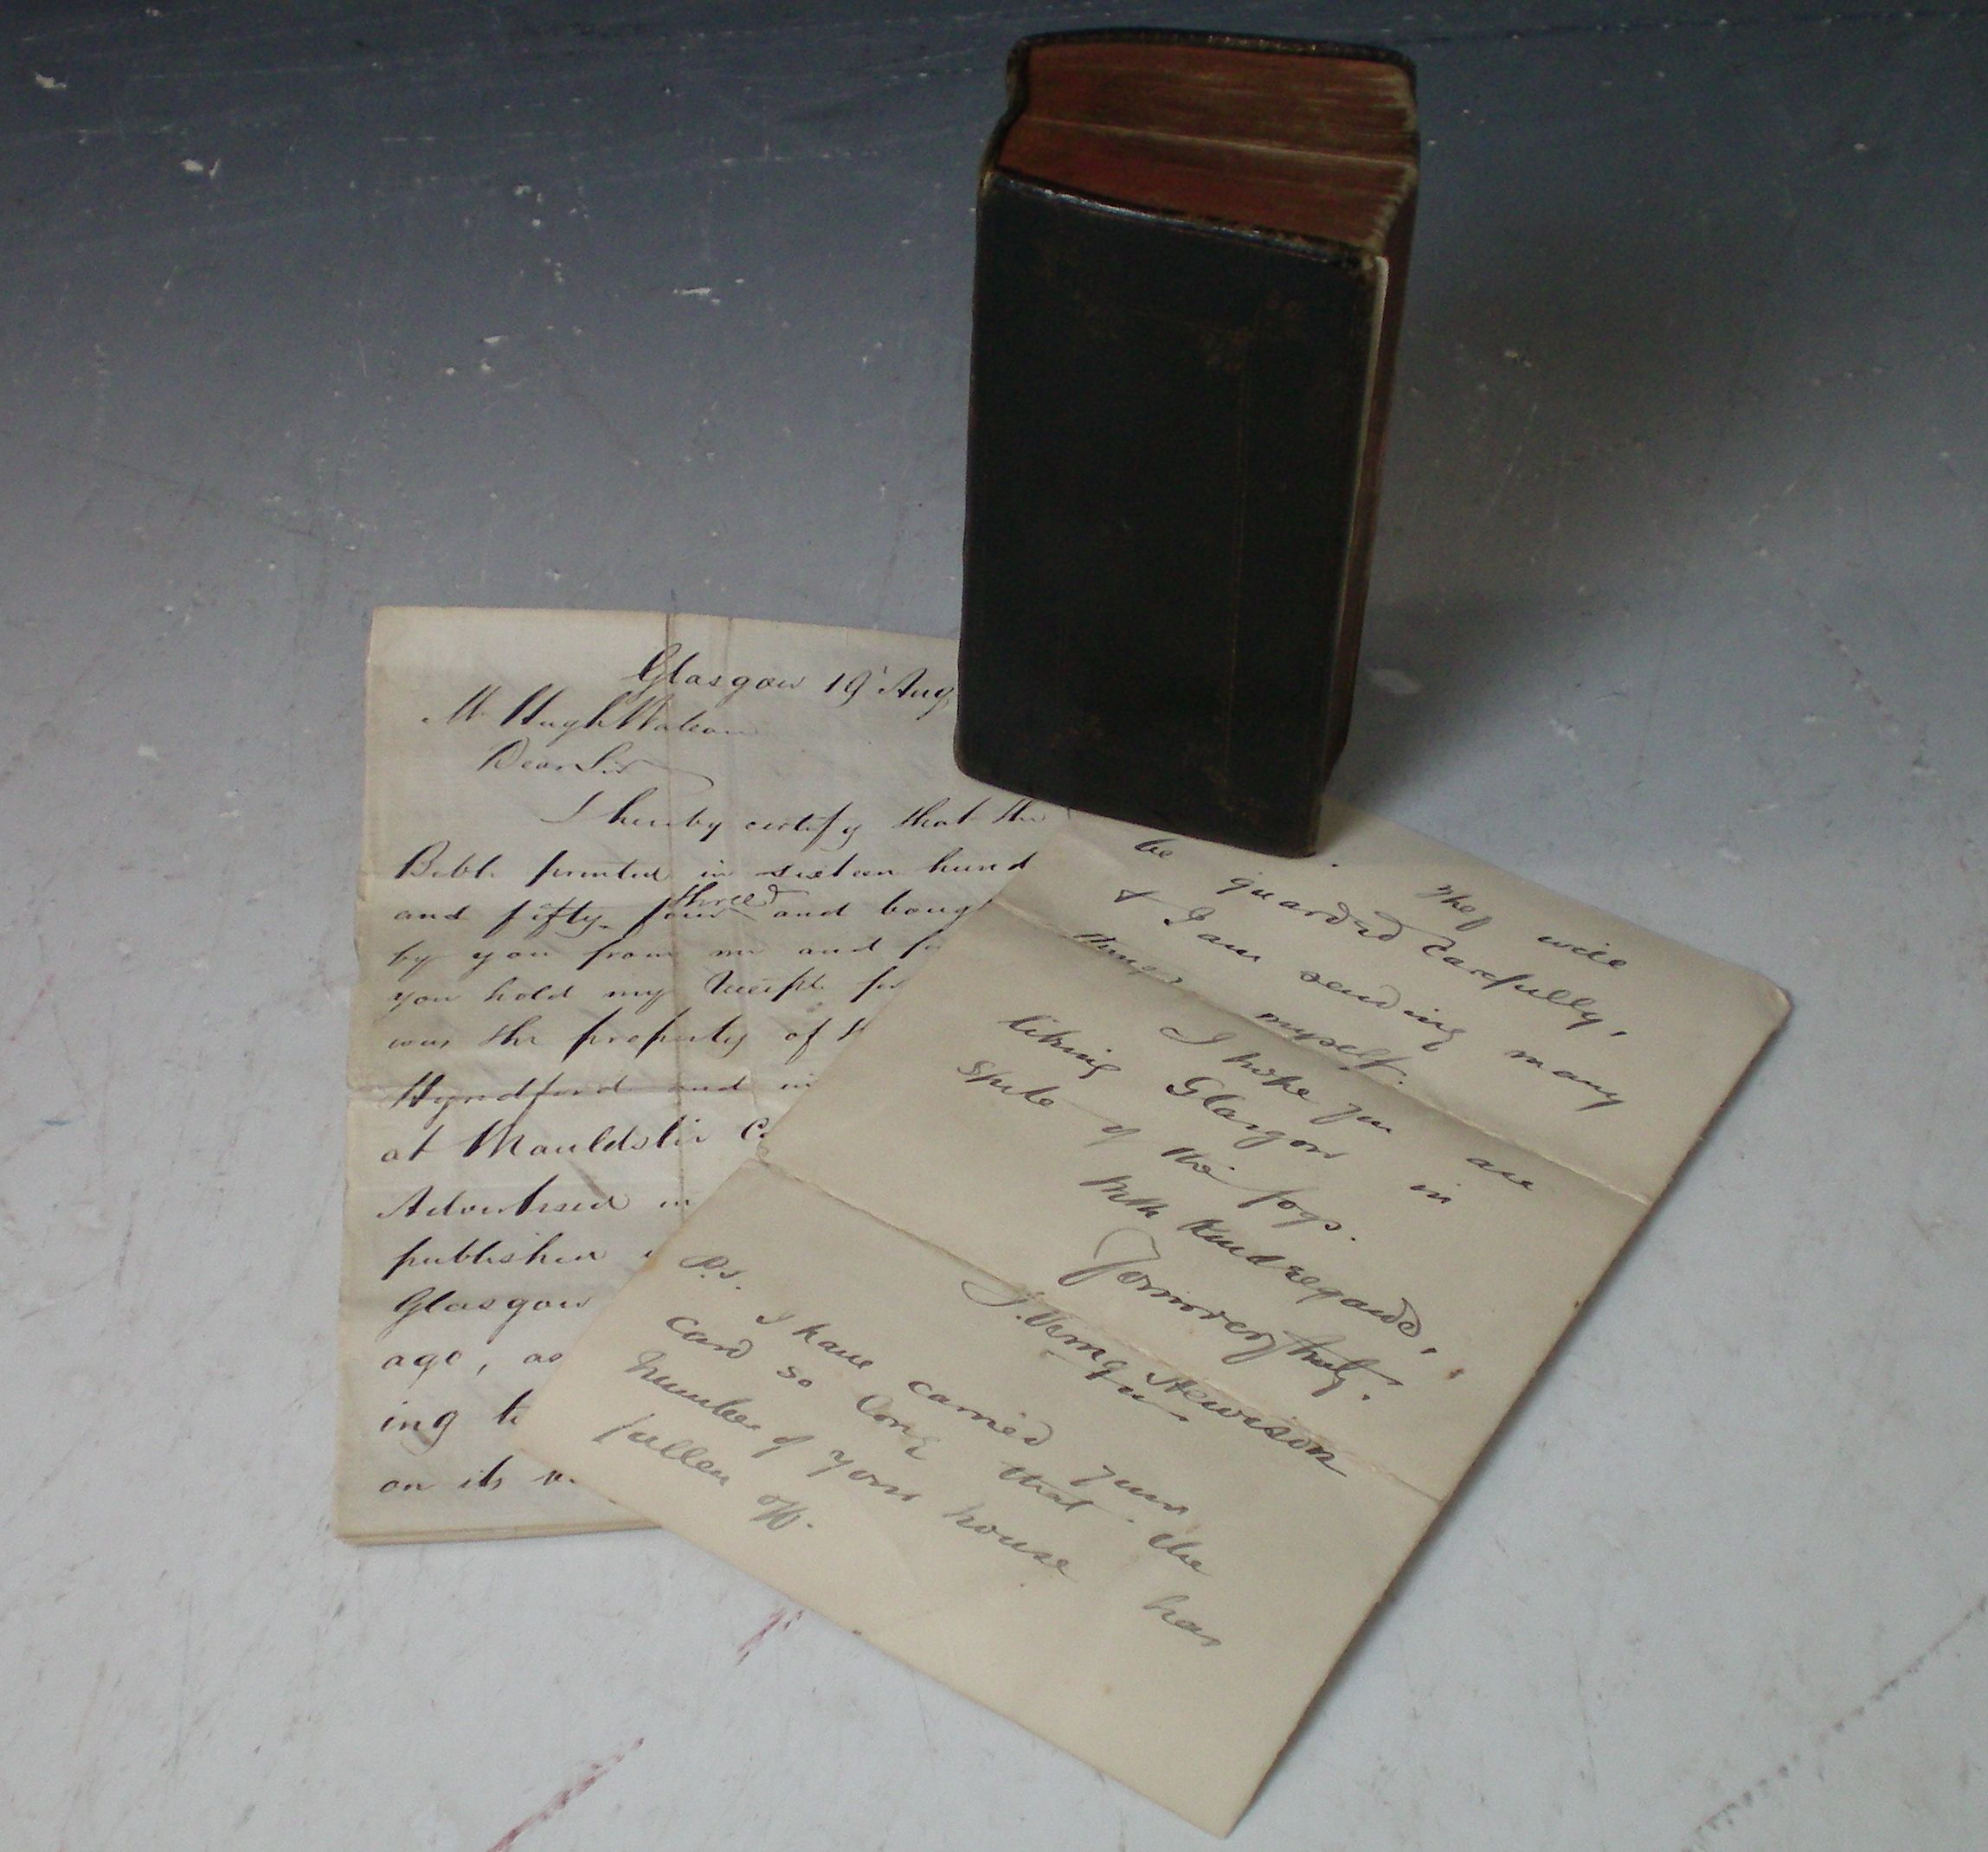 Glasgow 19' Aug
Mr Hugh Watson
Dear Sir
I hereby certify that the
Bible printed in sixteen hund
three
and fifty four and boug
by you from me and fo
you hold my Receipt for
was the property of
Hyndford and in
at Mauldslie C
Advertised in
published
Glasgow
ago, as
ing to
on its
be
They will
guarded carefully,
& I am sending many
things myself.
I hope you are
liking Glasgow in
spite of the fogs.
With kind regards,
Yours very truly.
J. King Hewison
P.S.
I have carried your
card so long that the
number of your house has
fallen off.